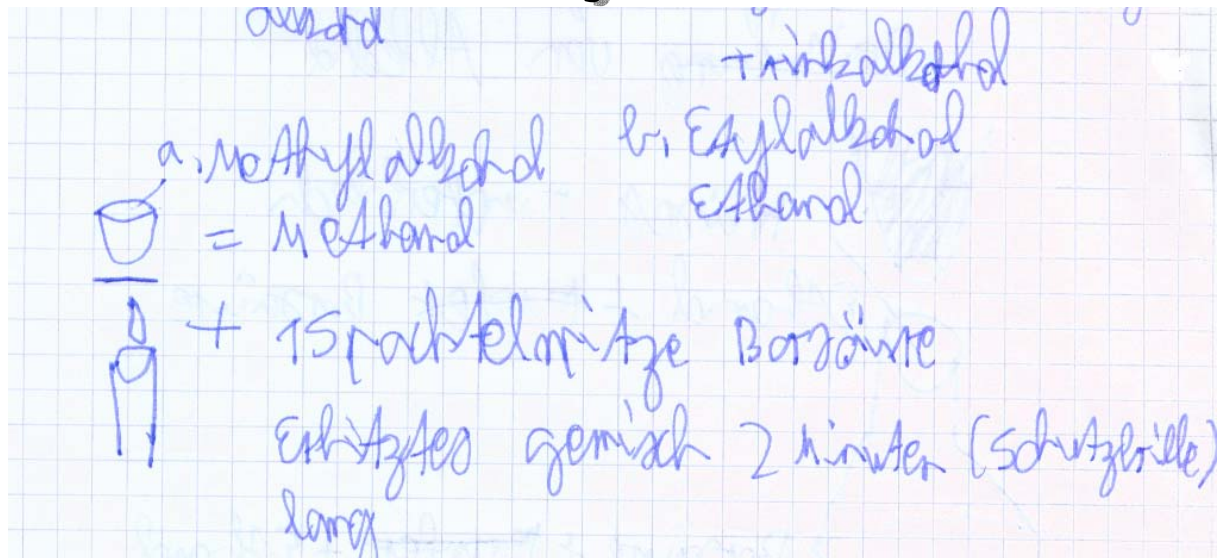 Trinkalkohol
a, Methylalkohol b, Ethylalkohol
= Methanol Ethanol
+ 1 Spachtelspitze Borsäure
Erhitztes gemisch 2 Minuten (Schutzbrille)
lang